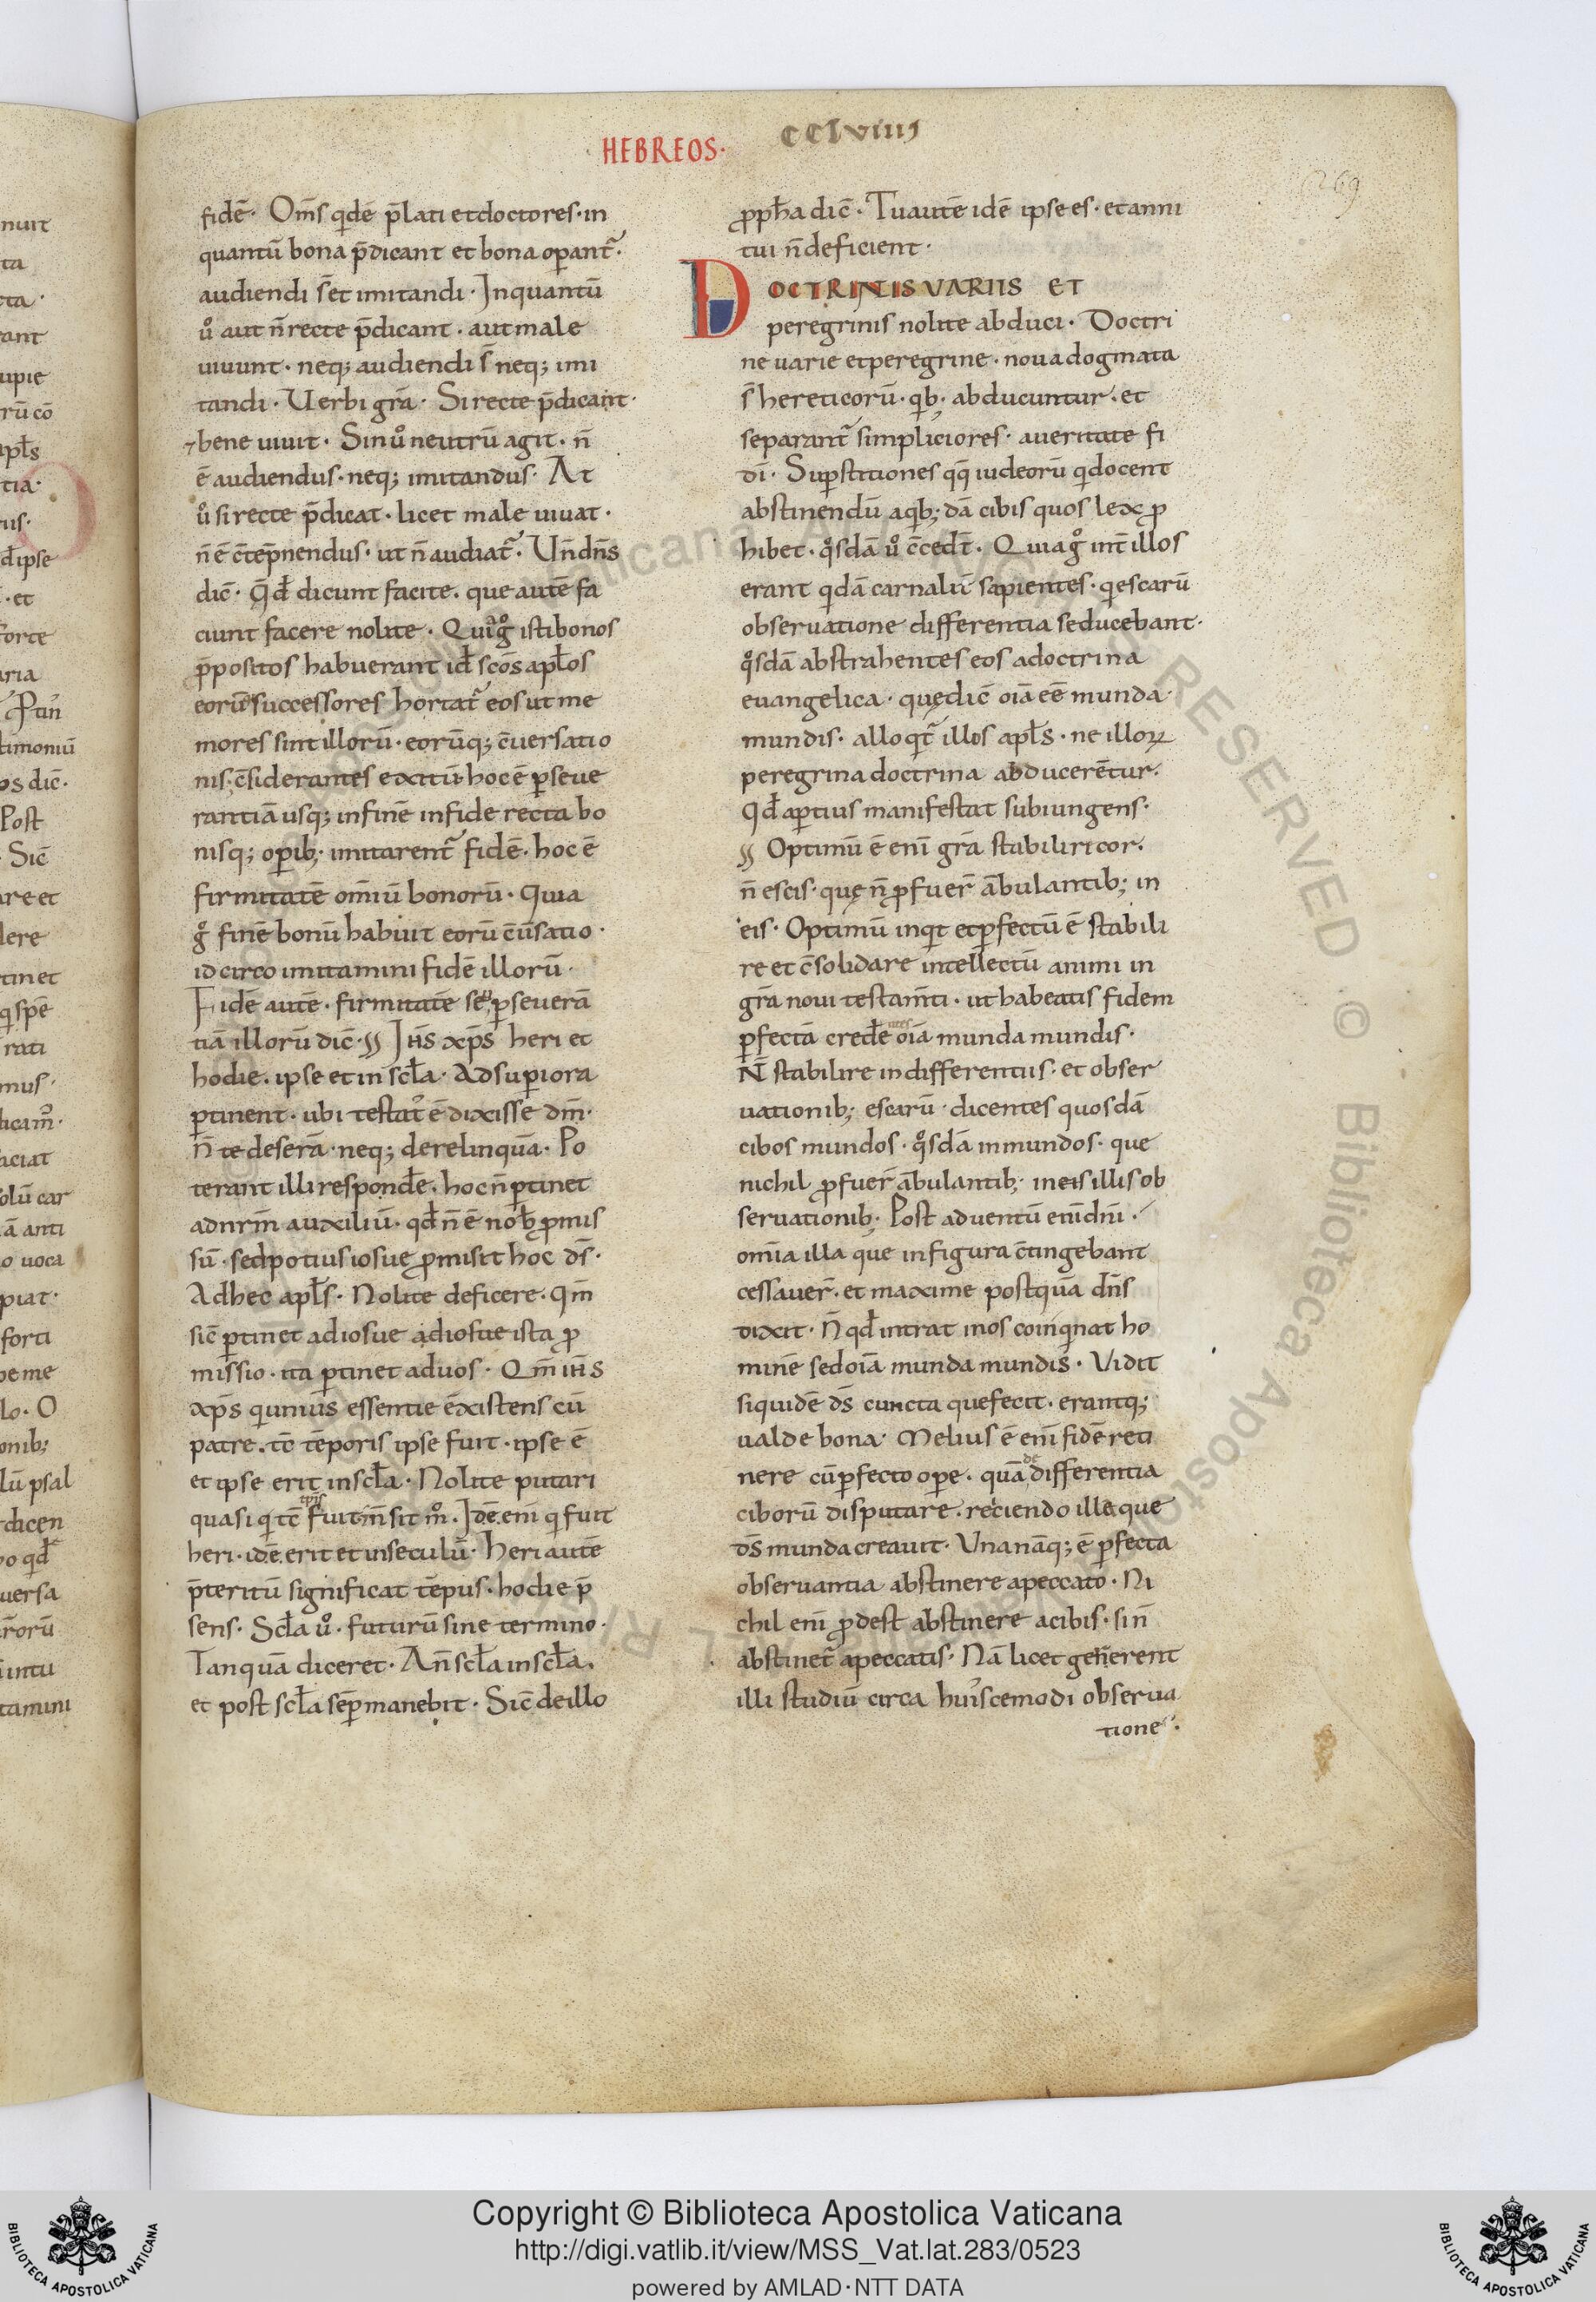 HEBREOS·
CCLVIIII
269
fidē· Om̄s qidē p̄lati et doctores· in
quantū bona p̄dicant et bona operant᷑·
audiendi s̄ et imitandi· Inquantū
uͦ aut n̄ recte p̄dicant· aut male
uiuunt· neq; audiendi s̄ neq; imi
tandi· Verbi gr̄a· Si recte p̄dicant·
⁊ bene uiuit· Sin uͦ neutrū agit· n̄
ē audiendus· neq; imitandus· At
uͦ si recte p̄dicat· licet male uiuat·
n̄ ē c̄tēpnendus· ut n̄ audiat᷑· Vn̄ dn̄s
dic̄· Qđ dicunt facite· que autē fa
ciunt facere nolite· Quia gͦ isti bonos
p̄positos habuerant iđ sc̄os apl̄os
eorūq; successores hortat᷑ eos ut me
mores sint illorū· eorūq; c̄uersatio
nis; c̄siderantes exitū· hoc ē p̱seue
rantiā usq; in finē in fide recta bo
nisq; opib; imitarent᷑ fidē· hoc ē
firmitatē om̄iū bonorū· Quia
gͦ finē bonū habuit eorū c̄uersatio·
idcirco imitamini fidē illorū·
Fidē autē· firmitatē seu p̱seuerā
tiā illorū dic̄· Ih̄s xp̄s heri et
hodie· ipse et in scl̄a· Ad supiora
p̱tinent· ubi testat᷑ ē dixisse dn̄m·
n̄ te deserā· neq; derelinquā· Po
terant illi respondē· hoc n̄ p̱tinet
ad nr̄m auxiliū· qđ n̄ ē nob̄ ꝓmis
sū· sed potius iosue ꝓmisit hoc ds̄·
Ad hec apl̄s· Nolite deficere· Qm̄
sic̄ p̱tinet ad iosue ad iosue ista ꝓ
missio· ita p̱tinet ad uos· Qm̄ ih̄s
xp̄s qi unius essentie ēxistens cū
patre· tc̄ tēporis ipse fuit· ipse ē
et ipse erit in scl̄a· Nolite putari
quasi qi tc̄ fuit m̄ sit mͦ· Idē eni qi fuit
heri· idē erit et in seculū· Heri autē
p̄teritū significat tēpus· hodie p̄
sens· Scl̄a uͦ· futurū sine termino·
Tanquā diceret· An̄ scl̄a in scl̄a·
et post scl̄a sēp̱ manebit· Sic̄ de illo
ꝓph̄a dic̄· Tu autē idē ipse es· et anni
tui n̄ deficient·
DOCTRINIS VARIIS ET
peregrinis nolite abduci· Doctri
ne uarie et peregrine· noua dogmata
s̄ hereticorū· qib; abducuntur· et
separant᷑ simpliciores· a ueritate fi
dī· Supstitiones qq̄ iudeorū qi docent
abstinendū a qib; dā cibis quos lex ꝓ
hibet· qͦsdā uͦ c̄cedt̄· Quia gͦ int̄ illos
erant qidā carnaliū sapientes· qi escarū
obseruatione differentia seducebant·
qͦsdā abstrahentes eos a doctrina
euangelica· quę dic̄ oīa ēē munda
mundis· alloqit᷑ illos apl̄s· ne illoꝝ
peregrina doctrina abducerētur·
Qđ aptius manifestat subiungens·
Optimū ē enī gr̄a stabiliri cor·
n̄ escis· quę n̄ ꝓfuer̄ ābulantib; in
eis· Optimū inqit et p̱fectū ē stabili
re et c̄solidare intellectū animi in
gr̄a noui testam̄ti· ut habeatis fidem
p̱fectā credētes oīa munda mundis·
N̄ stabilire in differentiis· et obser
uationib; escarū· dicentes quosdā
cibos mundos· qͦsdā inmundos· que
nichil ꝓfuer̄ ābulantib; in eis illis ob
seruationib; Post aduentū enī dn̄i·
omīa illa que in figura c̄tingebant
cessauer̄· et maxime postquā dn̄s
dixit· N̄ qđ intrat in os coinqinat ho
minē sed oīa munda mundis· Vidit
siquidē ds̄ cuncta que fecit· erantq;
ualde bona· Melius ē enī fidē reti
nere cū p̱fecto ope· quā de differentia
ciborū disputare· reciendo illa que
ds̄ munda creauit· Vna nāq; ē p̱fecta
obseruantia abstinere a peccato· Ni
chil enī ꝓdest abstinere a cibis· si n̄
abstinet᷑ a peccatis· Nā licet gererent
illi studiū circa hui᷒scemodi obserua
tionē·
Copyright © Biblioteca Apostolica Vaticana
http://digi.vatlib.it/view/MSS_Vat.lat.283/0523
powered by AMLAD·NTT DATA